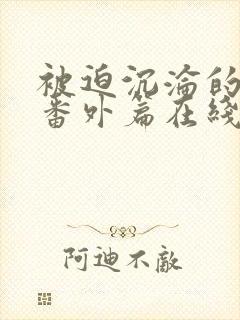 被迫沉淪的
番外篇在綫
阿迪不敵